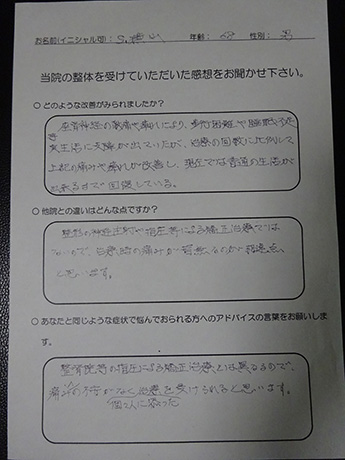 お名前(イニシャル可): S.   年齢: 68 性別: 男
当院の整体を受けていただいた感想をお聞かせ下さい。
○ どのような改善がみられましたか?
坐骨神経の疼痛や痺れにより、歩行困難や睡眠
等
食生活に支障が出ていたが、治療の回数に比例して
上記の痛みや痺れが改善し、現在では普通の生活が
出来るまで回復している。
○ 他院との違いはどんな点ですか?
指圧等による矯正治療では
ないので、治療時の痛みが
と思います。
○ あなたと同じような症状で悩んでおられる方へのアドバイスの言葉をお願いしま
す。
整骨院等の指圧による矯正治療とは異なるので、
痛み がなく治療を受けられると思います。
個々人に